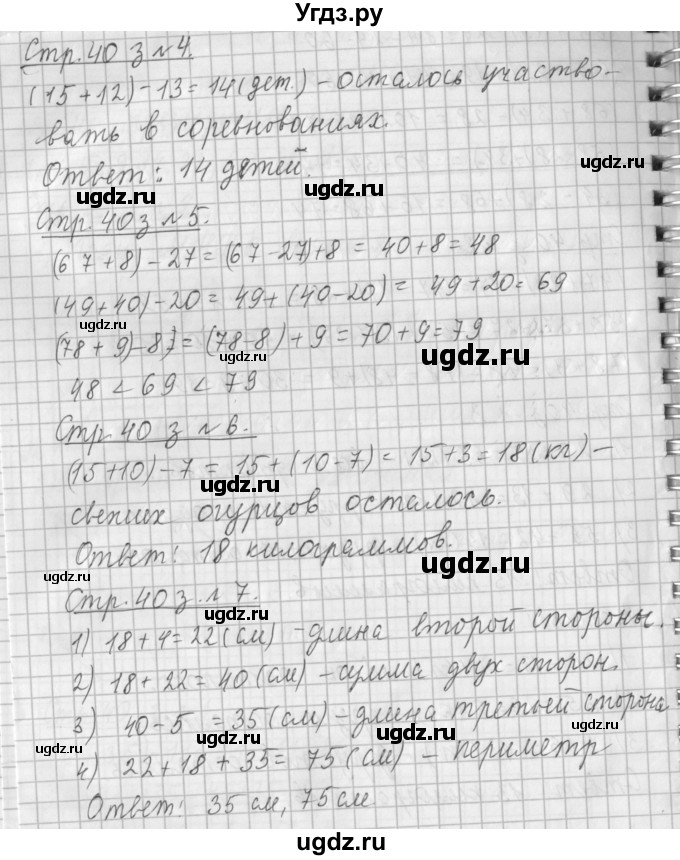 Угдз.ру
Стр. 40 з № 4.
(15+12)-13=14(дет.) - осталось участво-
вать в соревнованиях.
ugdz.ru
Ответ: 14 детей.
ugdz.ru
Стр. 40 з № 5.
ugdz.ru
(67+8)-27=(67-27)+8=40+8=48
(49+40)-20=49+(40-20)=49+20=69
ugdz.ru
(78+9)-8)=(78-8)+9=70+9=79
ugdz.ru
ugdz.ru
48<69<79
Стр. 40 з № 6.
(15+10)-7=15+(10-7)=15+3=18(кг) -
ugdz.ru
свежих огурцов осталось.
Ответ: 18 килограммов.
ugdz.ru
ugdz.ru
Стр. 40 з. № 7.
ugdz.ru
1) 18+4=22(см) - длина второй стороны.
2) 18+22=40(см) - сумма двух сторон.
3) 40-5=35(см) - длина третьей сторона
ugdz.ru
ugdz.ru
ugdz.ru
4) 22+18+35=75(см) - периметр
Ответ: 35 см, 75 см
ugdz.ru